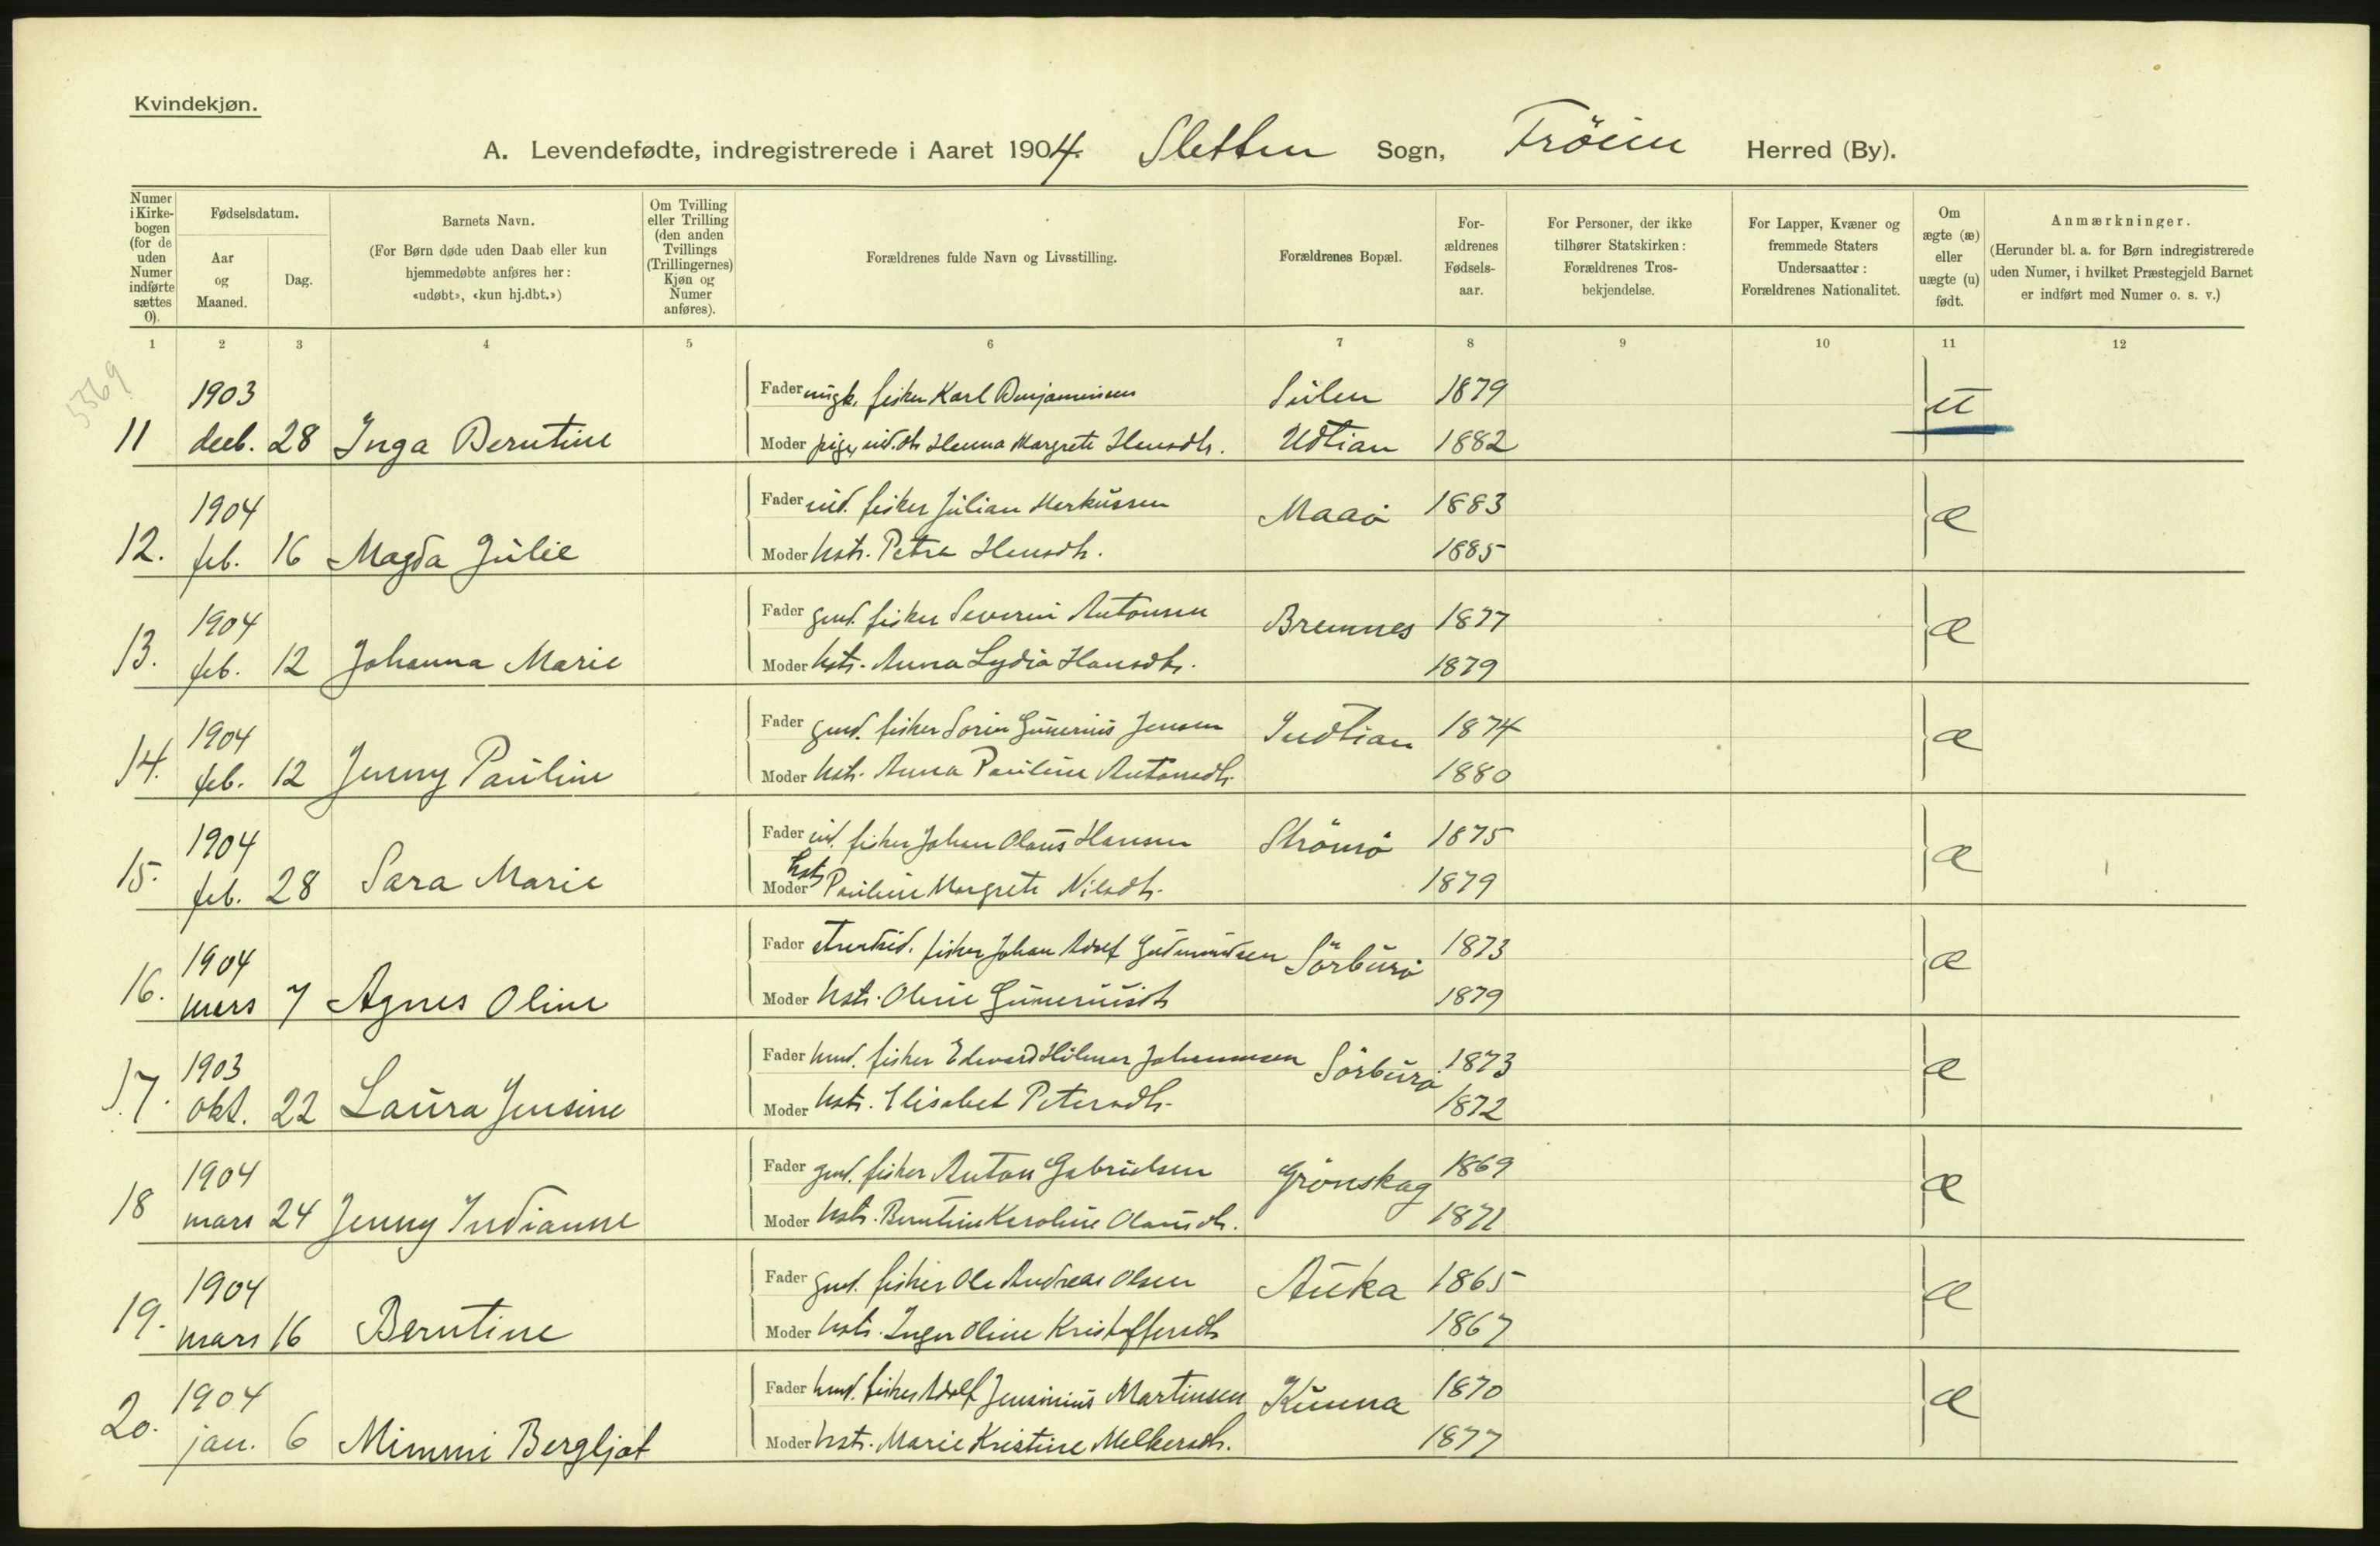 Kvindekjøn.
A. Levendefødte, indregistrerede i Aaret 1904. Sletten Sogn, Fröien Herred (By).
Numer i Kirke-bogen (for de uden Numer indførte sættes 0).
Fødselsdatum.
Aar og Maaned.
Dag.
Barnets Navn.
(For Børn døde uden Daab eller kun hjemmedøbte anføres her: «udøbt», «kun hj.dbt.»)
Om Tvilling eller Trilling (den anden Tvillings (Trillingernes) Kjøn og Numer anføres).
Forældrenes fulde Navn og Livsstilling.
Forældrenes Bopæl.
For-ældrenes Fødsels-aar.
For Personer, der ikke tilhører Statskirken: Forældrenes Tros-bekjendelse.
For Lapper, Kvæner og fremmede Staters Undersaatter: Forældrenes Nationalitet.
Om ægte (æ) eller uægte (u) født.
Anmærkninger.
(Herunder bl. a. for Børn indregistrerede uden Numer, i hvilket Præstegjeld Barnet er indført med Numer o. s. v.)
1 2 3 4 5 6 7 8 9 10 11 12
5369
1903 Fader ungk. fisker Karl Benjaminsen Sulen 1879 u
11 decb. 28 Inga Berntine Moder pige, ind. dtr Hanna Margrete Hansdtr. Udtian 1882
1904 Fader ind. fisker Julian Markussen Maaø 1883 æ
12. feb. 16 Magda Julie Moder hstr. Petra Hansdtr. 1885
1904 Fader gmd. fisker Severin Antonsen Bremnes 1877 æ
13. feb. 12 Johanna Marie Moder hstr. Anna Lydia Hansdtr. 1879
1904 Fader gmd. fisker Sorin Gunerius Jensen Indtian 1874 æ
14. feb. 12 Jenny Pauline Moder hstr. Anna Pauline Antonsdtr. 1880
1904 Fader ind. fisker Johan Olaus Hansen Strömø 1875 æ
15. feb. 28 Sara Marie Moder hstr Pauline Margrete Nilsdtr. 1879
1904 Fader fisker Johan Adolf Gudmundsen Sörburø 1873 æ
16. mars 7 Agnes Oline Moder hstr. Oline Guneriusdtr 1879
1903 Fader hmd. fisker Edvard Hilmar Johannesen Sörburø 1873 æ
17. okt. 22 Laura Jensine Moder hstr. Elisabet Petersdtr. 1872
1904 Fader gmd. fisker Anton Gabrielsen Grönskag 1869 æ
18 mars 24 Jenny Indianne Moder hstr. Berntine Karoline Olausdtr. 1871
1904 Fader gmd. fisker Ole Andreas Olsen Auka 1865 æ
19. mars 16 Berntine Moder hstr. Inger Oline Kristoffersdtr 1867
1904 Fader hmd. fisker Adolf Jensinius Martinsen Kunna 1870 æ
20. jan. 6 Mimmi Bergljot Moder hstr. Marie Kristine Melkersdtr. 1877